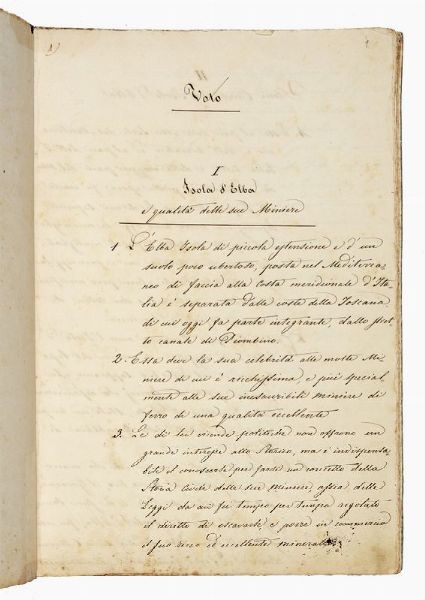 Voto
I
Isola d'Elba
e qualità delle sue Miniere
1 L'Elba Isola di piccola estensione e d'un
suolo poco ubertoso, posta nel Mediterra-
neo di faccia alla costa meridionale d'Ita-
lia è separata dalle coste della Toscana
di cui oggi fa parte integrante, dallo stret-
to canale di Piombino.
2. Essa deve la sua celebrità alle molte Mi-
niere di cui è ricchissima, e più special-
mente alle sue inesauribili miniere di
ferro di una qualità eccellente
3. Le di lei vicende politiche non offrono un
grande interesse alla Storia, ma è indispensa-
bile il conoscerle per farsi un concetto della
Storia Civile delle sue miniere, ossia delle
Leggi da cui fu tempo per tempo regolato
il diritto di escavarle, e porre in commercio
il suo ricco ed eccellente minerale